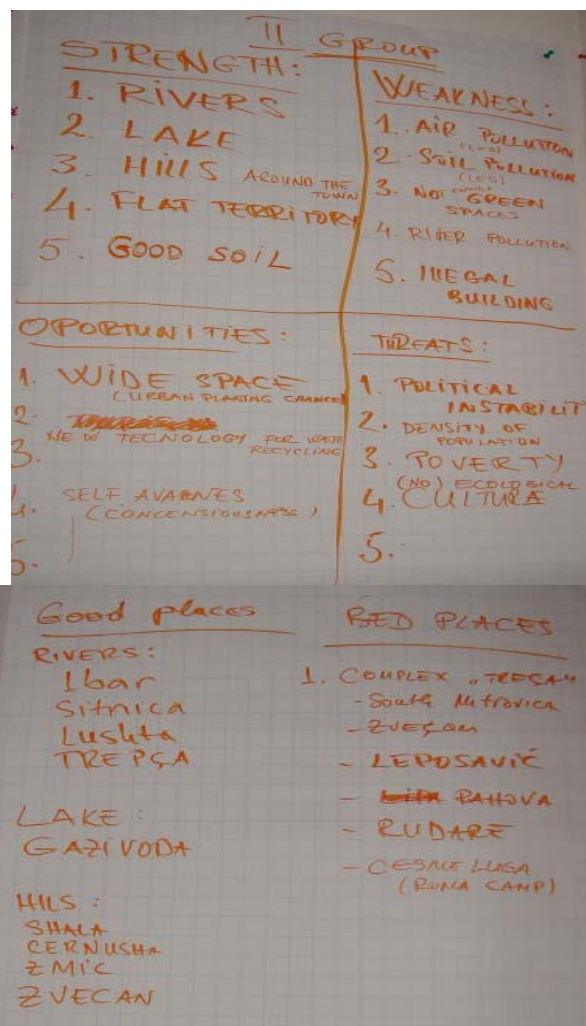 II GROUP
STRENGTH:
1. RIVERS
2. LAKE
3. HILLS AROUND THE
TOWN
4. FLAT TERRITORY
5. GOOD SOIL
WEAKNESS:
1. AIR POLLUTION
(LEO)
2. SOIL POLLUTION
(LEO)
3. NO ENOUGH GREEN
SPACES
4. RIVER POLLUTION
5. ILLEGAL
BUILDING
OPORTUNITIES:
1. WIDE SPACE
(URBAN PLANING CHANCES)
2.
NEW TECNOLOGY FOR WASTE
RECYCLING
3.
SELF AVARNES
4. (CONCENSIOUSNESS)
5.
THREATS:
1. POLITICAL
INSTABILIT
2. DENSITY OF
POPULATION
3. POVERTY
(NO) ECOLOGICAL
4. CULTURE
5.
Good places
RIVERS:
Ibar
Sitnica
Lushta
TREPÇA
LAKE:
GAZIVODA
HILS:
SHALA
CERNUSHA
ZMIC
ZVECAN
BED PLACES
1. COMPLEX „TREŞA"
- South Mitrovica
- Zveçan
- LEPOSAVIĆ
- RAHOVA
- RUDARE
- CESME LUGA
(ROMA CAMP)